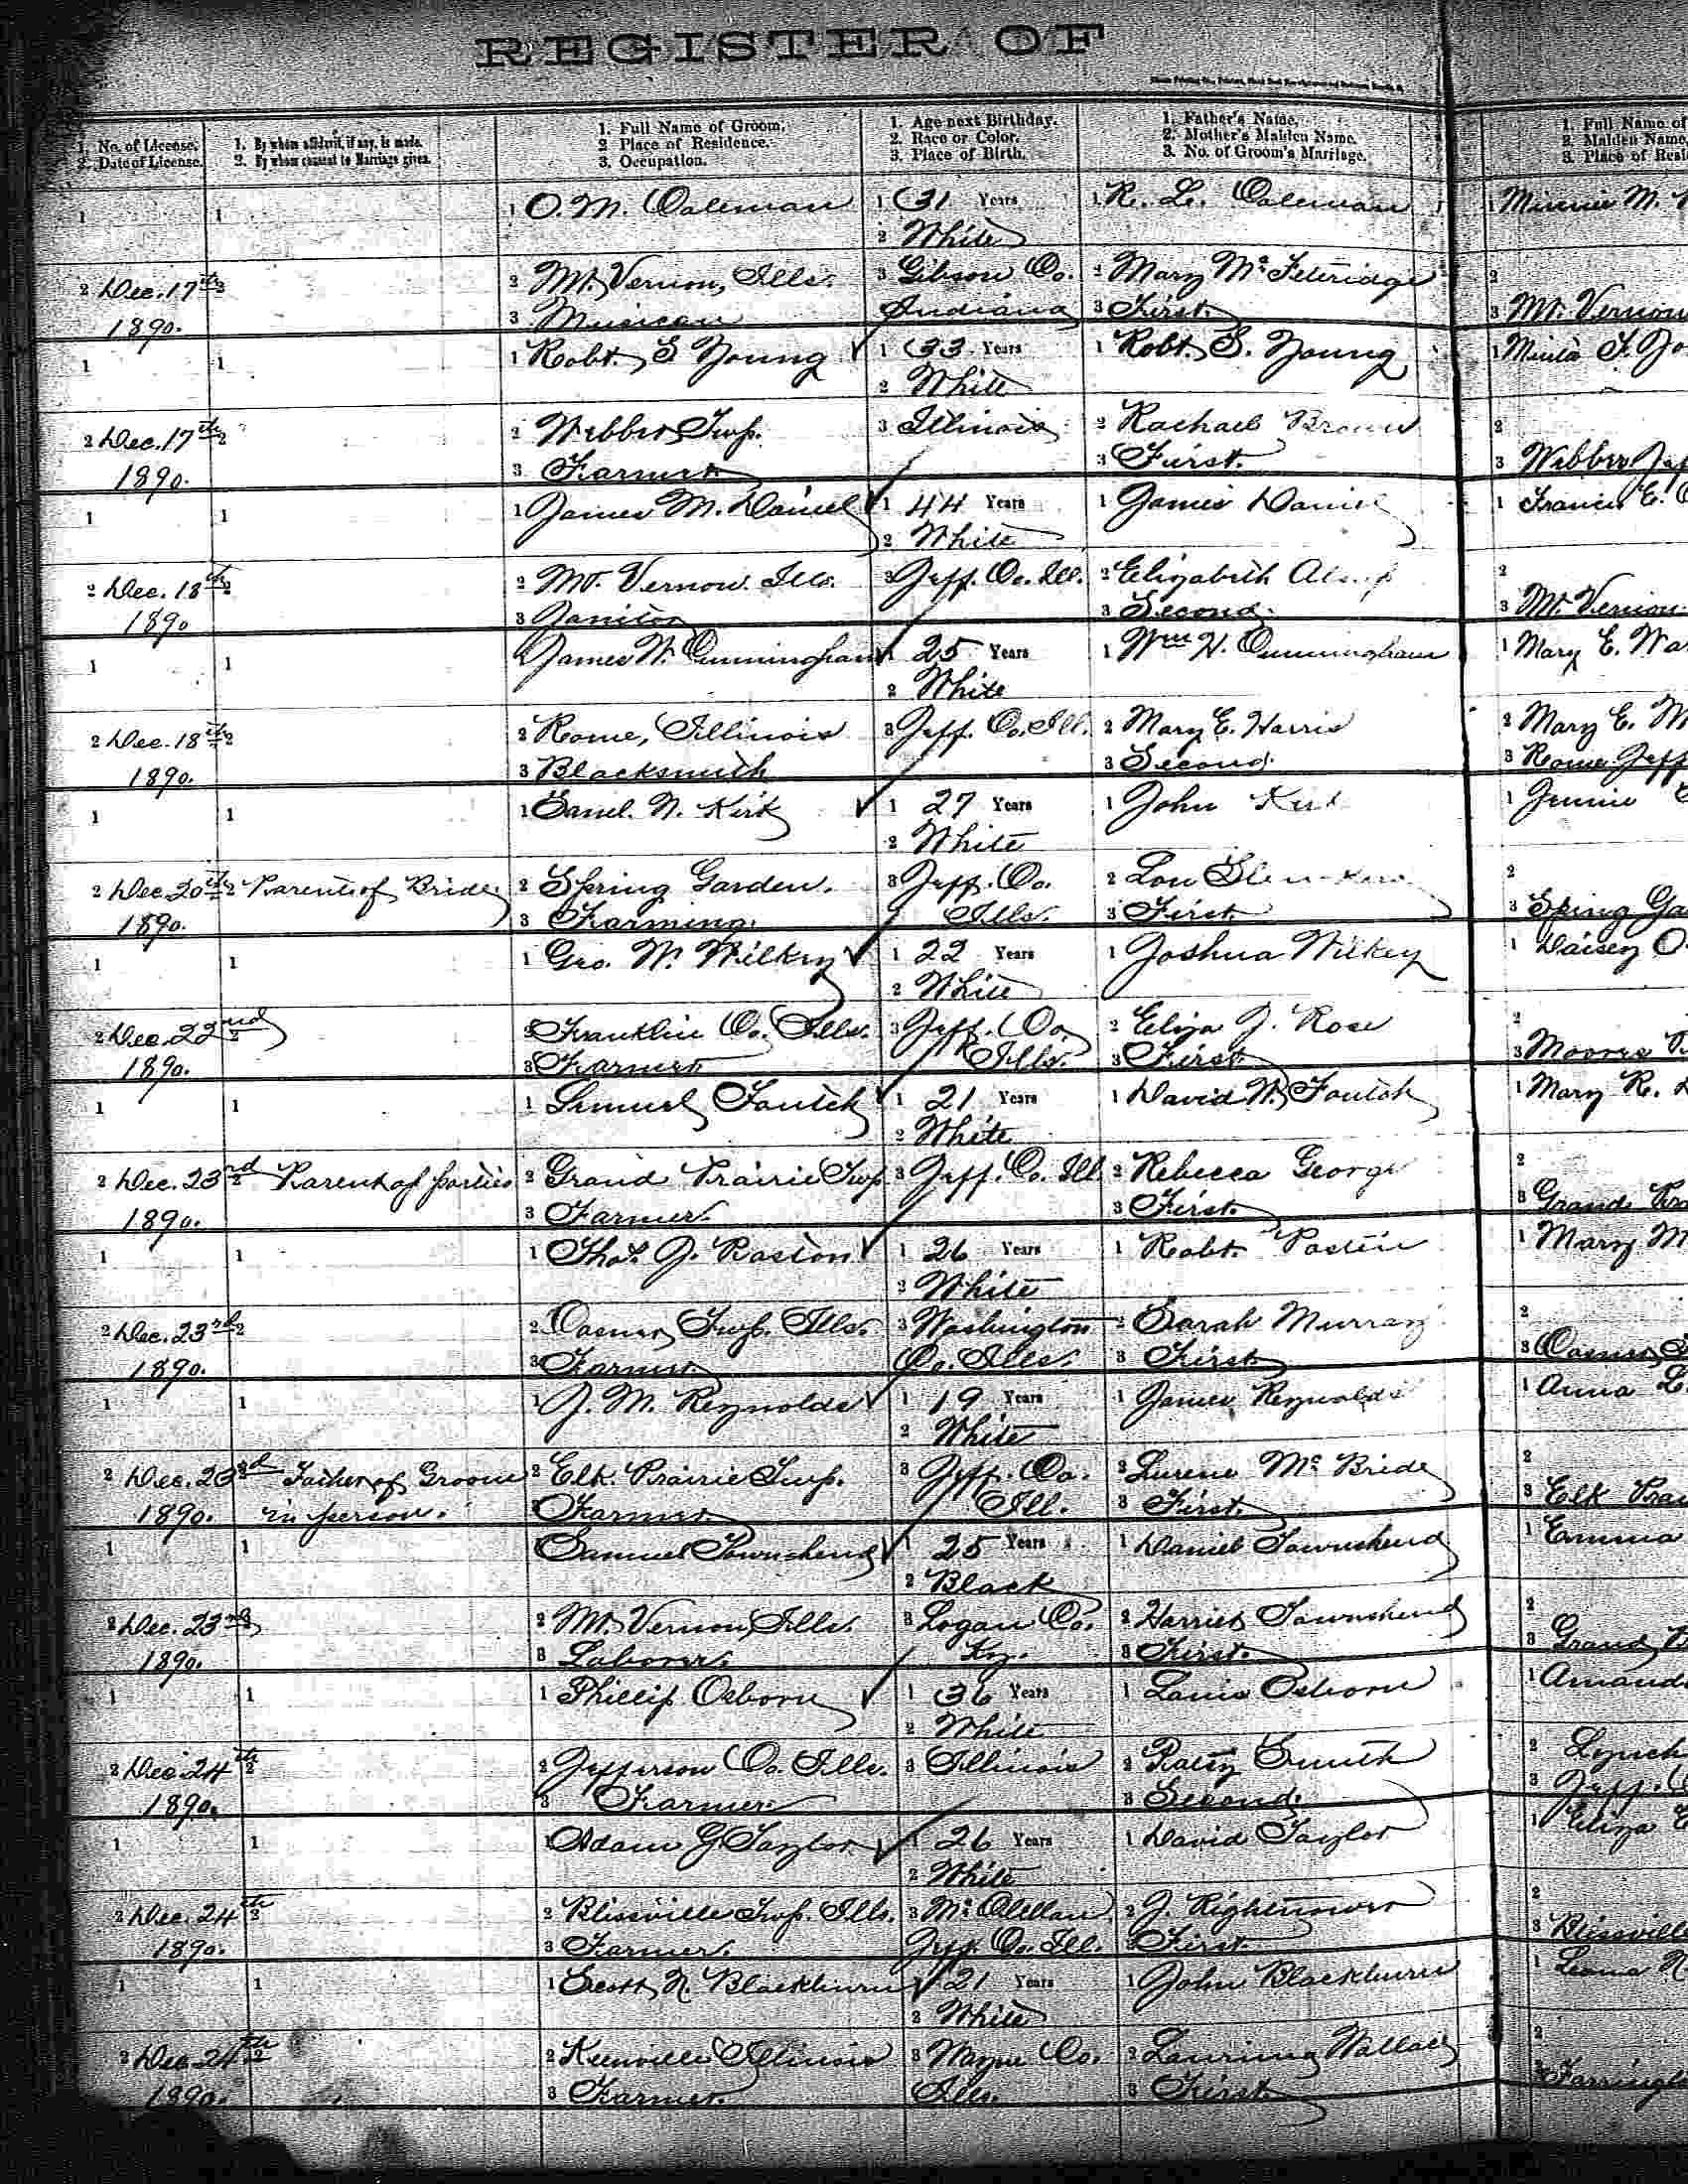 REGISTER OF
1. No. of License. 1. By whom affidavit, if any, is made. 1. Full Name of Groom. 1. Age next Birthday. 1. Father's Name. 1. Full Name of
2. Date of License. 2. By whom consent to Marriage given. 2. Place of Residence. 2. Race or Color. 2. Mother's Maiden Name. 2. Maiden Name
3. Occupation. 3. Place of Birth. 3. No. of Groom's Marriage. 3. Place of Resi
1 1 1 O. M. Coleman 1 31 Years 1 R. L. Coleman 1 Minnie M.
2 White
2 Dec. 17th 2 2 Mt. Vernon, Ills. 3 Gibson Co. 2 Mary 2
1890. 3 Musican Indiana 3 First. 3 Mt. Vernon
1 1 1 Robt. S Young 1 33 Years 1 Robt. S. Young 1
2 White
2 Dec. 17th 2 2 Webber Twp. 3 Illinois 2 Rachael Brown 2
1890. 3 Farmer 3 First. 3 Webber Jef
1 1 1 James M. Daniel 1 44 Years 1 James Daniel 1 Francis E.
2 White
2 Dec. 18th 2 2 Mt. Vernon. Ills. 3 Jeff. Co. Ill. 2 Elizabeth 2
1890 3 Janitor 3 Second. 3 Mt. Vernon
1 1 1 James W. Cunningham 1 25 Years 1 Wm H. Cunningham 1 Mary E. Wa
2 White
2 Dec. 18th 2 2 Rome, Illinois 3 Jeff. Co. Ill. 2 Mary E. Harris 2 Mary E. M
1890. 3 Blacksmith 3 Second. 3 Rome Jeff
1 1 1 Saml. N. Kirk 1 27 Years 1 John Kirk 1 Jennie
2 White
2 Dec. 20th 2 Parents of Bride 2 Spring Garden. 3 Jeff. Co. 2 Lou 2
1890. 3 Farming. Ills. 3 First. 3 Spring Ga
1 1 1 Geo. W. Wilkey 1 22 Years 1 Joshua Wilkey 1 Daisey O
2 White
2 Dec. 22nd 2 2 Franklin Co. Ills. 3 Jeff. Co 2 Eliza J. Rose 2
1890. 3 Farmer Ills. 3 First. 3 Moores
1 1 1 Lemuel Foutch 1 21 Years 1 David W. Foutch 1 Mary R.
2 White
2 Dec. 23rd 2 Parent of parties 2 Grand Prairie Twp 3 Jeff. Co. Ill. 2 Rebecca George 2
1890. 3 Farmer. 3 First. 3 Grand Pra
1 1 1 Thos. J. Paston 1 26 Years 1 Robt. 1 Mary M
2 White
2 Dec. 23rd 2 2 Casner Twp. Ills. 3 Washington 2 Sarah Murray 2
1890. 3 Farmer. Co. Ills. 3 First. 3 Casner
1 1 1 J. M. Reynolds 1 19 Years 1 James Reynolds 1 Anna L.
2 White
2 Dec. 23rd 2 Father of Groom 2 Elk Prairie Twp. 3 Jeff. Co. 2 Lurene McBride 2
1890. in person. 3 Farmer Ill. 3 First. 3 Elk Prai
1 1 1 Samuel Townshend 1 25 Years 1 Daniel Townshend 1 Emma
2 Black
2 Dec. 23rd 2 Mt. Vernon, Ills. 3 Logan Co. 2 Harriet Townshend 2
1890. 3 Laborer. Ky. 3 First. 3 Grand
1 1 1 Phillip Osborn 1 36 Years 1 Louis Osborn 1 Amand
2 White
2 Dec. 24th 2 2 Jefferson Co. Ills. 3 Illinois 2 Patsy Smith 2 Lynch
1890. 3 Farmer. 3 Second. 3 Jeff. C
1 1 1 Adam G Taylor 1 26 Years 1 David Taylor 1 Eliza E
2 White
2 Dec. 24th 2 2 Blissville Twp. Ills. 3 McClellan 2 J. Rightnower 2
1890. 3 Farmer. Jeff. Co. Ill. 3 First. 3 Blissville
1 1 1 Scott N. Blackburn 1 21 Years 1 John Blackburn 1 Leona
2 White
2 Dec. 24th 2 2 Keenville Illinois 3 Wayne Co. 2 Wallace 2
1890. 3 Farmer. Ills. 3 First. 3 Farringt